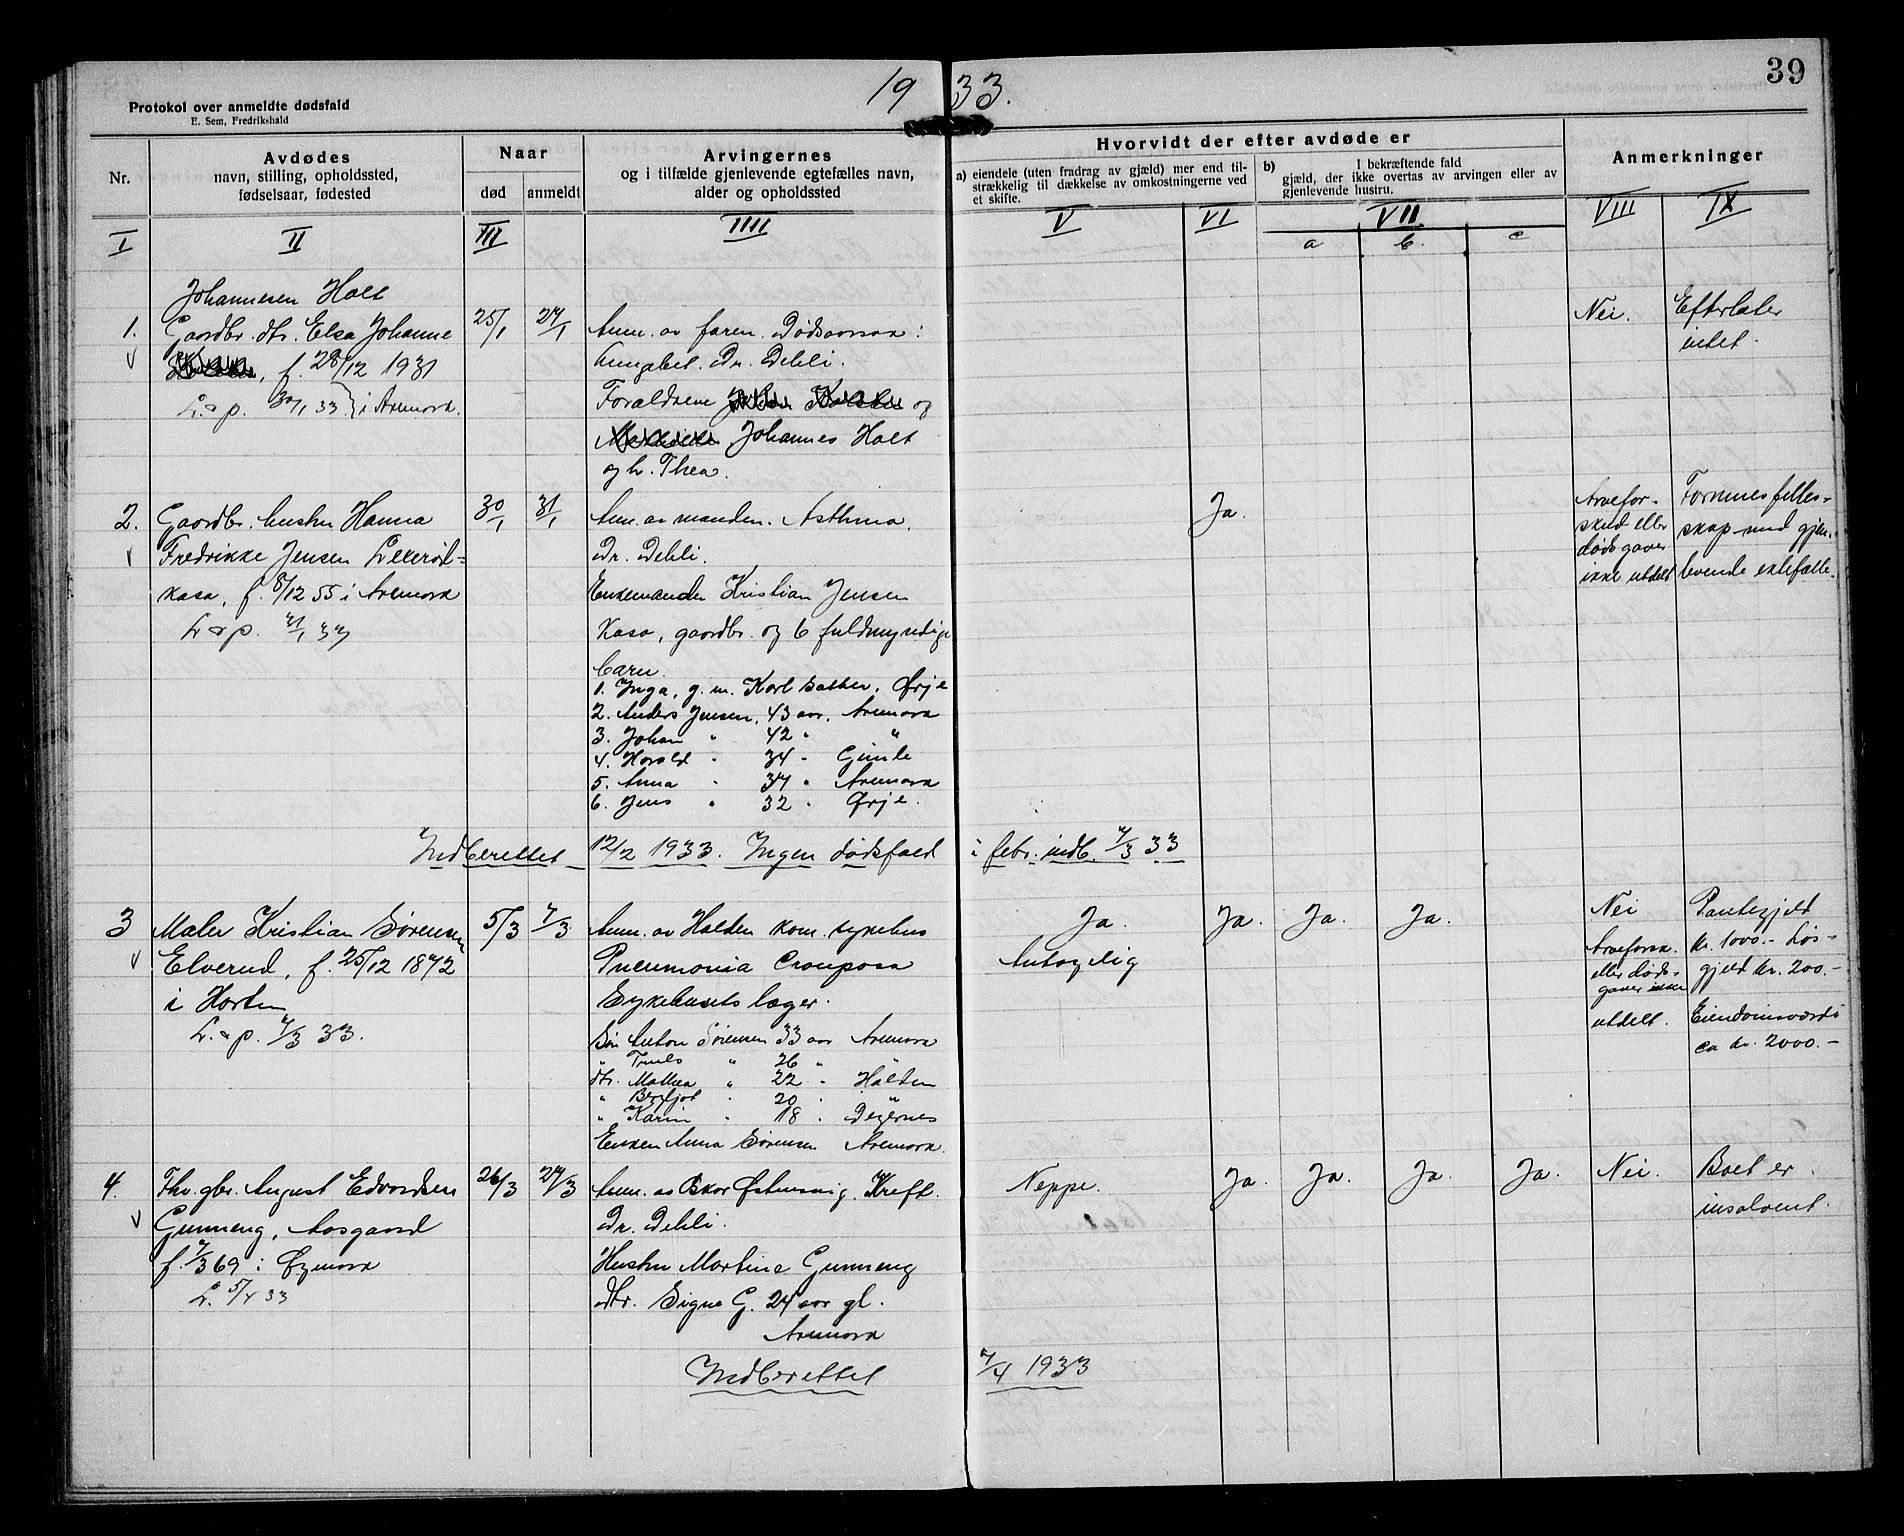 39
19 33.
Protokol over anmeldte dødsfald
E. Sem, Fredrikshald
Nr.
Avdødes
navn, stilling, opholdssted,
fødselsaar, fødested
Naar
død
anmeldt
Arvingernes
og i tilfælde gjenlevende egtefælles navn,
alder og opholdssted
Hvorvidt der efter avdøde er
a) eiendele (uten fradrag av gjæld) mer end til-
strækkelig til dækkelse av omkostningerne ved
et skifte.
b) I bekræftende fald
gjæld, der ikke overtas av arvingen eller av
gjenlevende hustru.
Anmerkninger
I II III IIII V VI VII VIII IX
a b. c
Johannesen Holt
1. Gaardbr. dtr. Elsa Johanne
f. 28/12 1931
L. o p. 30/1 33 i Aremark.
25/1 27/1
Anm. av faren. Dødsaarsak:
Dr. Dehli.
Forældrene og
Johannes Holt
og h. Thea.
Nei.
Efterlater
intet.
2. Gaardbr. hustru Hanna
Fredrikke Jensen
kasa, f. 8/12 55 i Aremark
L o p. 31/1 33
30/1 31/1
Anm. av manden. Asthma.
Dr. Dehli.
Enkemanden Kristian Jensen
Kasa, gaardbr. og 6 fuldmyndige
barn.
1. Inga, g. m. Karl Bakken, Ørje
2. Anders Jensen, 43 aar, Aremark
3. Johan " 42 " "
4. Harald " 34 " Gimle
5. Anna " 37 " Aremark
6. Jens " 32 " Ørje.
Ja.
Arvefor-
skud eller
dødsgaver
ikke utdelt
Formuesfelles-
skap med gjen-
levende ektefælle.
Indberettet 12/2 1933. Ingen dødsfald i febr. indb. 7/3 33
3 Maler Kristian Sørensen
Elverud, f. 25/12 1872
i Horten
L. o p. 7/3 33.
5/3 7/3
Anm. av Halden kom. sykehus
Pneumonia Crouposa
Sykehusets læger.
Søn Anton Sørensen 33 aar Aremark
" Truls " 26 " "
dtr. Mathea " 22 " Halden
" Bergljot " 20 " "
" Karin " 18 " Degernes
Enken Anna Sørensen Aremark.
Ja.
Antagelig
Ja. Ja. Ja.
Nei
Arveforsk.
eller døds-
gaver ikke
utdelt.
Pantegjeld
kr. 1000.- Løs-
gjeld kr. 200.-
Eiendomsværdi
ca kr. 2000.-
4. Fhv. gbr. August Edvardsen
Gunneng, Aasgaard
f. 7/3 69 i Øymark
L. 5/4 33
26/3 27/3
Anm. av Østensvig. Kreft.
Dr. Dehli.
Hustru Martine Gunneng
dtr. Signe G. 24 aar gl.
Aremark
Neppe.
Ja. Ja. Ja. Ja. Nei.
Boet er
insolvent.
Indberettet 7/4 1933